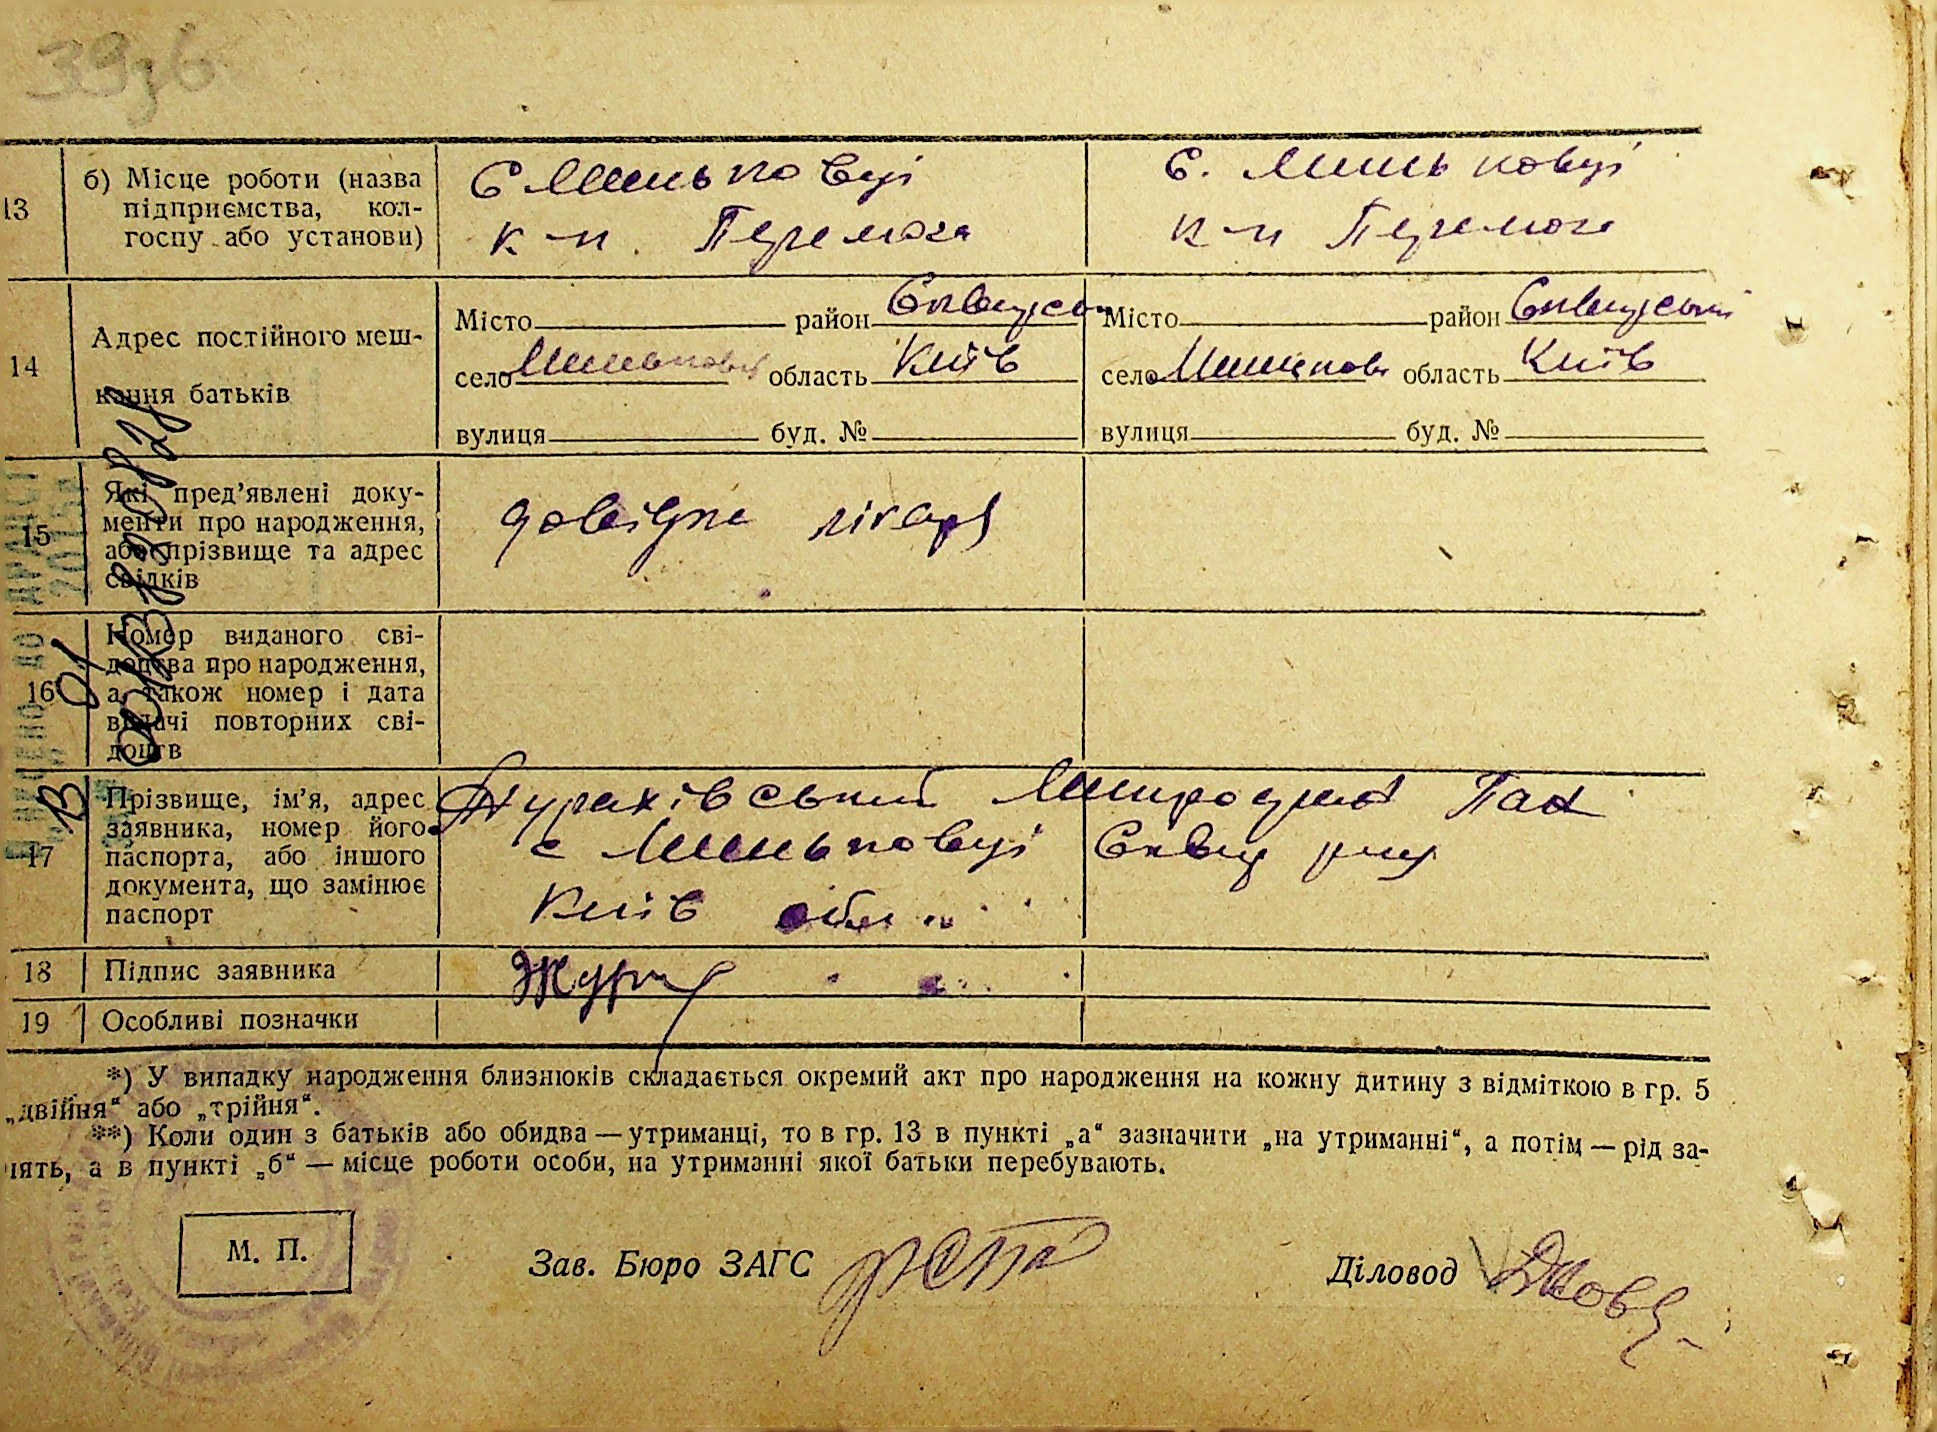 39зб
13
б) Місце роботи (назва
підприємства, кол-
госпу або установи)
С Шиньковці
к-п. Перемога
С. Шиньковці
к-п Перемога
14
Адрес постійного меш-
кання батьків
Місто район Сквирськ
село Шиньковці область Київ
вулиця буд. №
Місто район Сквирський
село область Київ
вулиця буд. №
15
Які пред’явлені доку-
менти про народження,
або прізвище та адрес
свідків
довідка лікаря
16
Номер виданого сві-
доцтва про народження,
а також номер і дата
видачі повторних сві-
доцтв
17
Прізвище, ім’я, адрес
заявника, номер його
паспорта, або іншого
документа, що замінює
паспорт
Журахівський
с Шиньковці Сквир
Київ обл
18
Підпис заявника
Жур
19
Особливі позначки
*) У випадку народження близнюків складається окремий акт про народження на кожну дитину з відміткою в гр. 5
„двійня“ або „трійня“.
**) Коли один з батьків або обидва — утриманці, то в гр. 13 в пункті „а“ зазначити „на утриманні“, а потім — рід за-
нять, а в пункті „б“ — місце роботи особи, на утриманні якої батьки перебувають.
М. П.
Зав. Бюро ЗАГС
Діловод